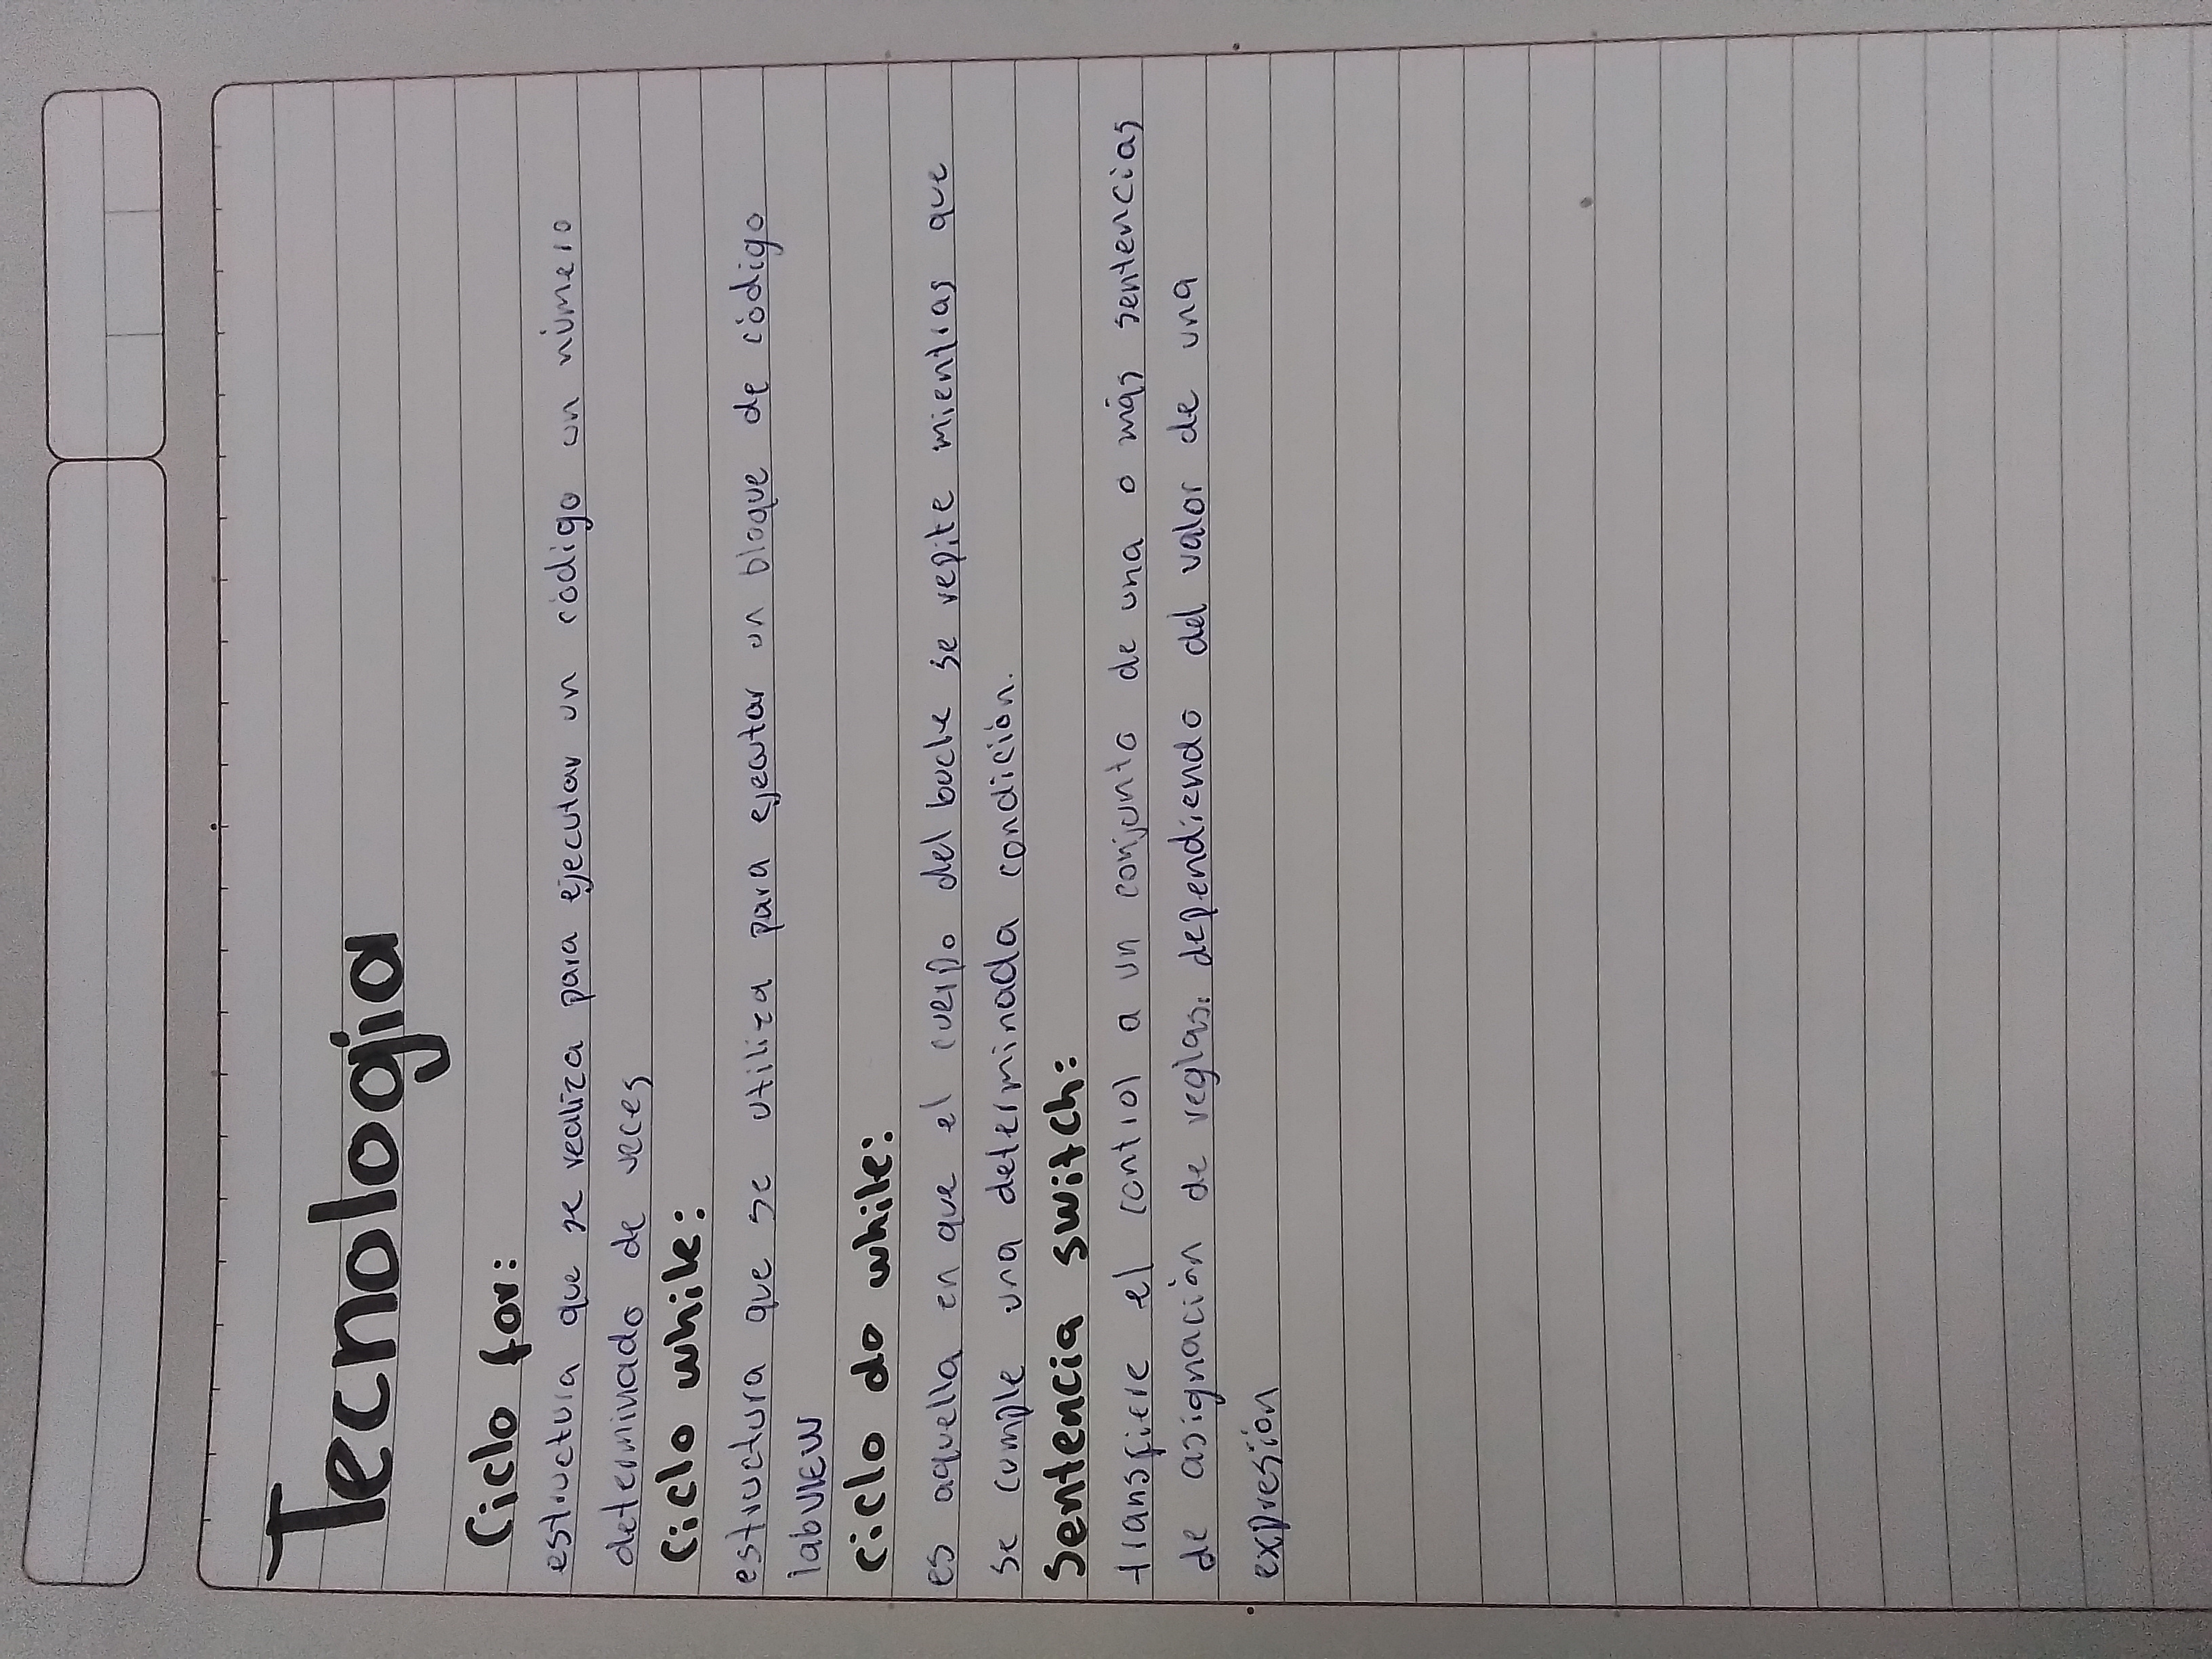 Tecnologia
Ciclo for:
estructura que se realiza para ejecutar un código un número
determinado de veces
Ciclo while:
estructura que se utiliza para ejecutar un bloque de código
labVIEW
Ciclo do while:
es aquella en que el cuerpo del bucle se repite mientras que
se cumple una determinada condición.
Sentencia switch:
transfiere el control a un conjunto de una o más sentencias
de asignación de reglas: dependiendo del valor de una
expresión